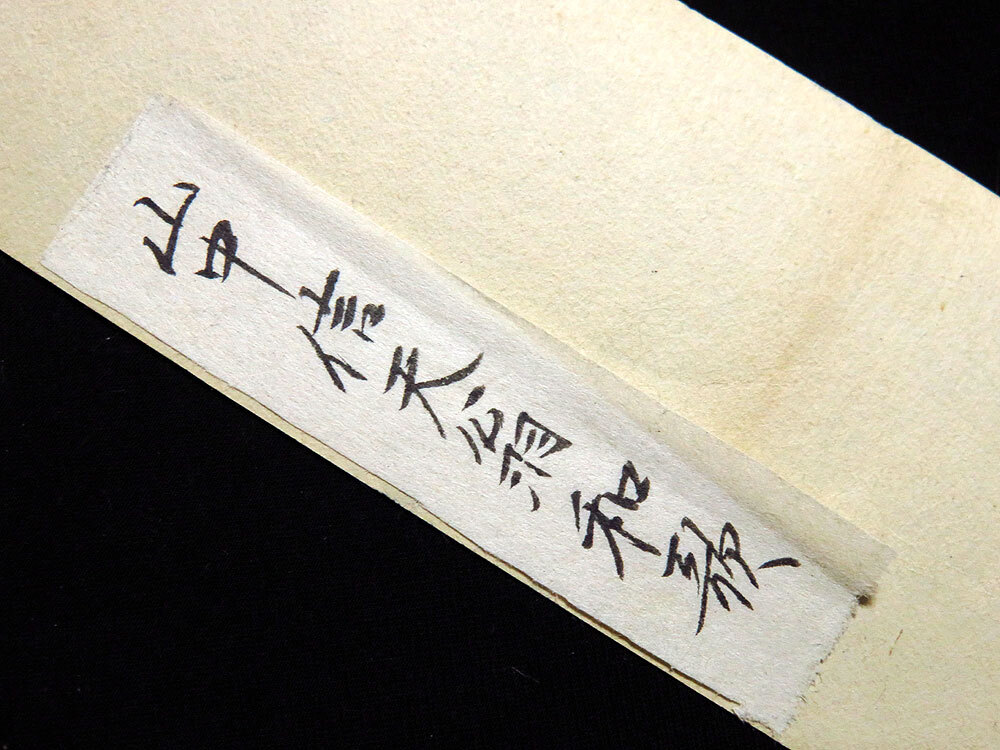 山中信天翁和歌